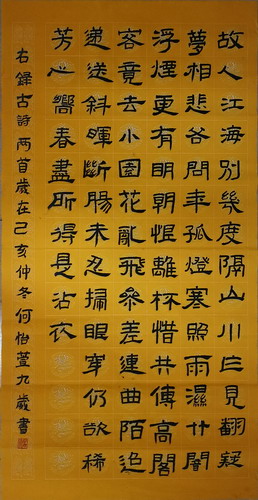 故人江海別幾度隔山川乍見翻疑
夢相悲各問年孤燈寒照雨濕竹闇
浮煙更有明朝恨離杯惜共傳高閣
客竟去小園花亂飛參差連曲陌迢
遞送斜暉斷腸未忍掃眼穿仍欲稀
芳心嚮春盡所得是沾衣
右錄古詩兩首歲在己亥仲冬何怡萱九歲書